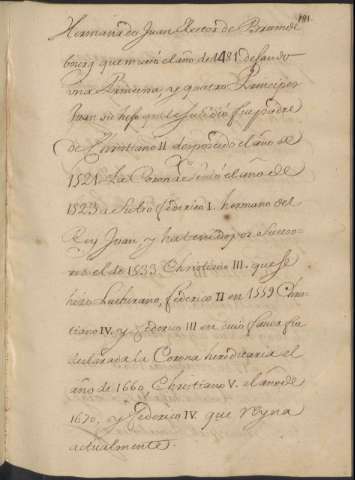 191.
Hermana de Juan Elector de Brande
bourg que murió el año de 1481 dejando
una Princesa, y quatro Principes
Juan su hijo que le subcedio fue padre
de Christiano II desposeido el año de
1521. La Corona se dió el año de
1523 a su tio federico I. hermano del
Rey Juan, y ha tenido por suceso-
res el de 1533 Christiano III. que se
hizo Lutherano, federico II en 1559 Chris
tiano IV. y federico III en cuio favor fue
declarada la Corona hereditaria el
año de 1660, Christiano V. el año de
1670, y federico IV. que reyna
actualmente.